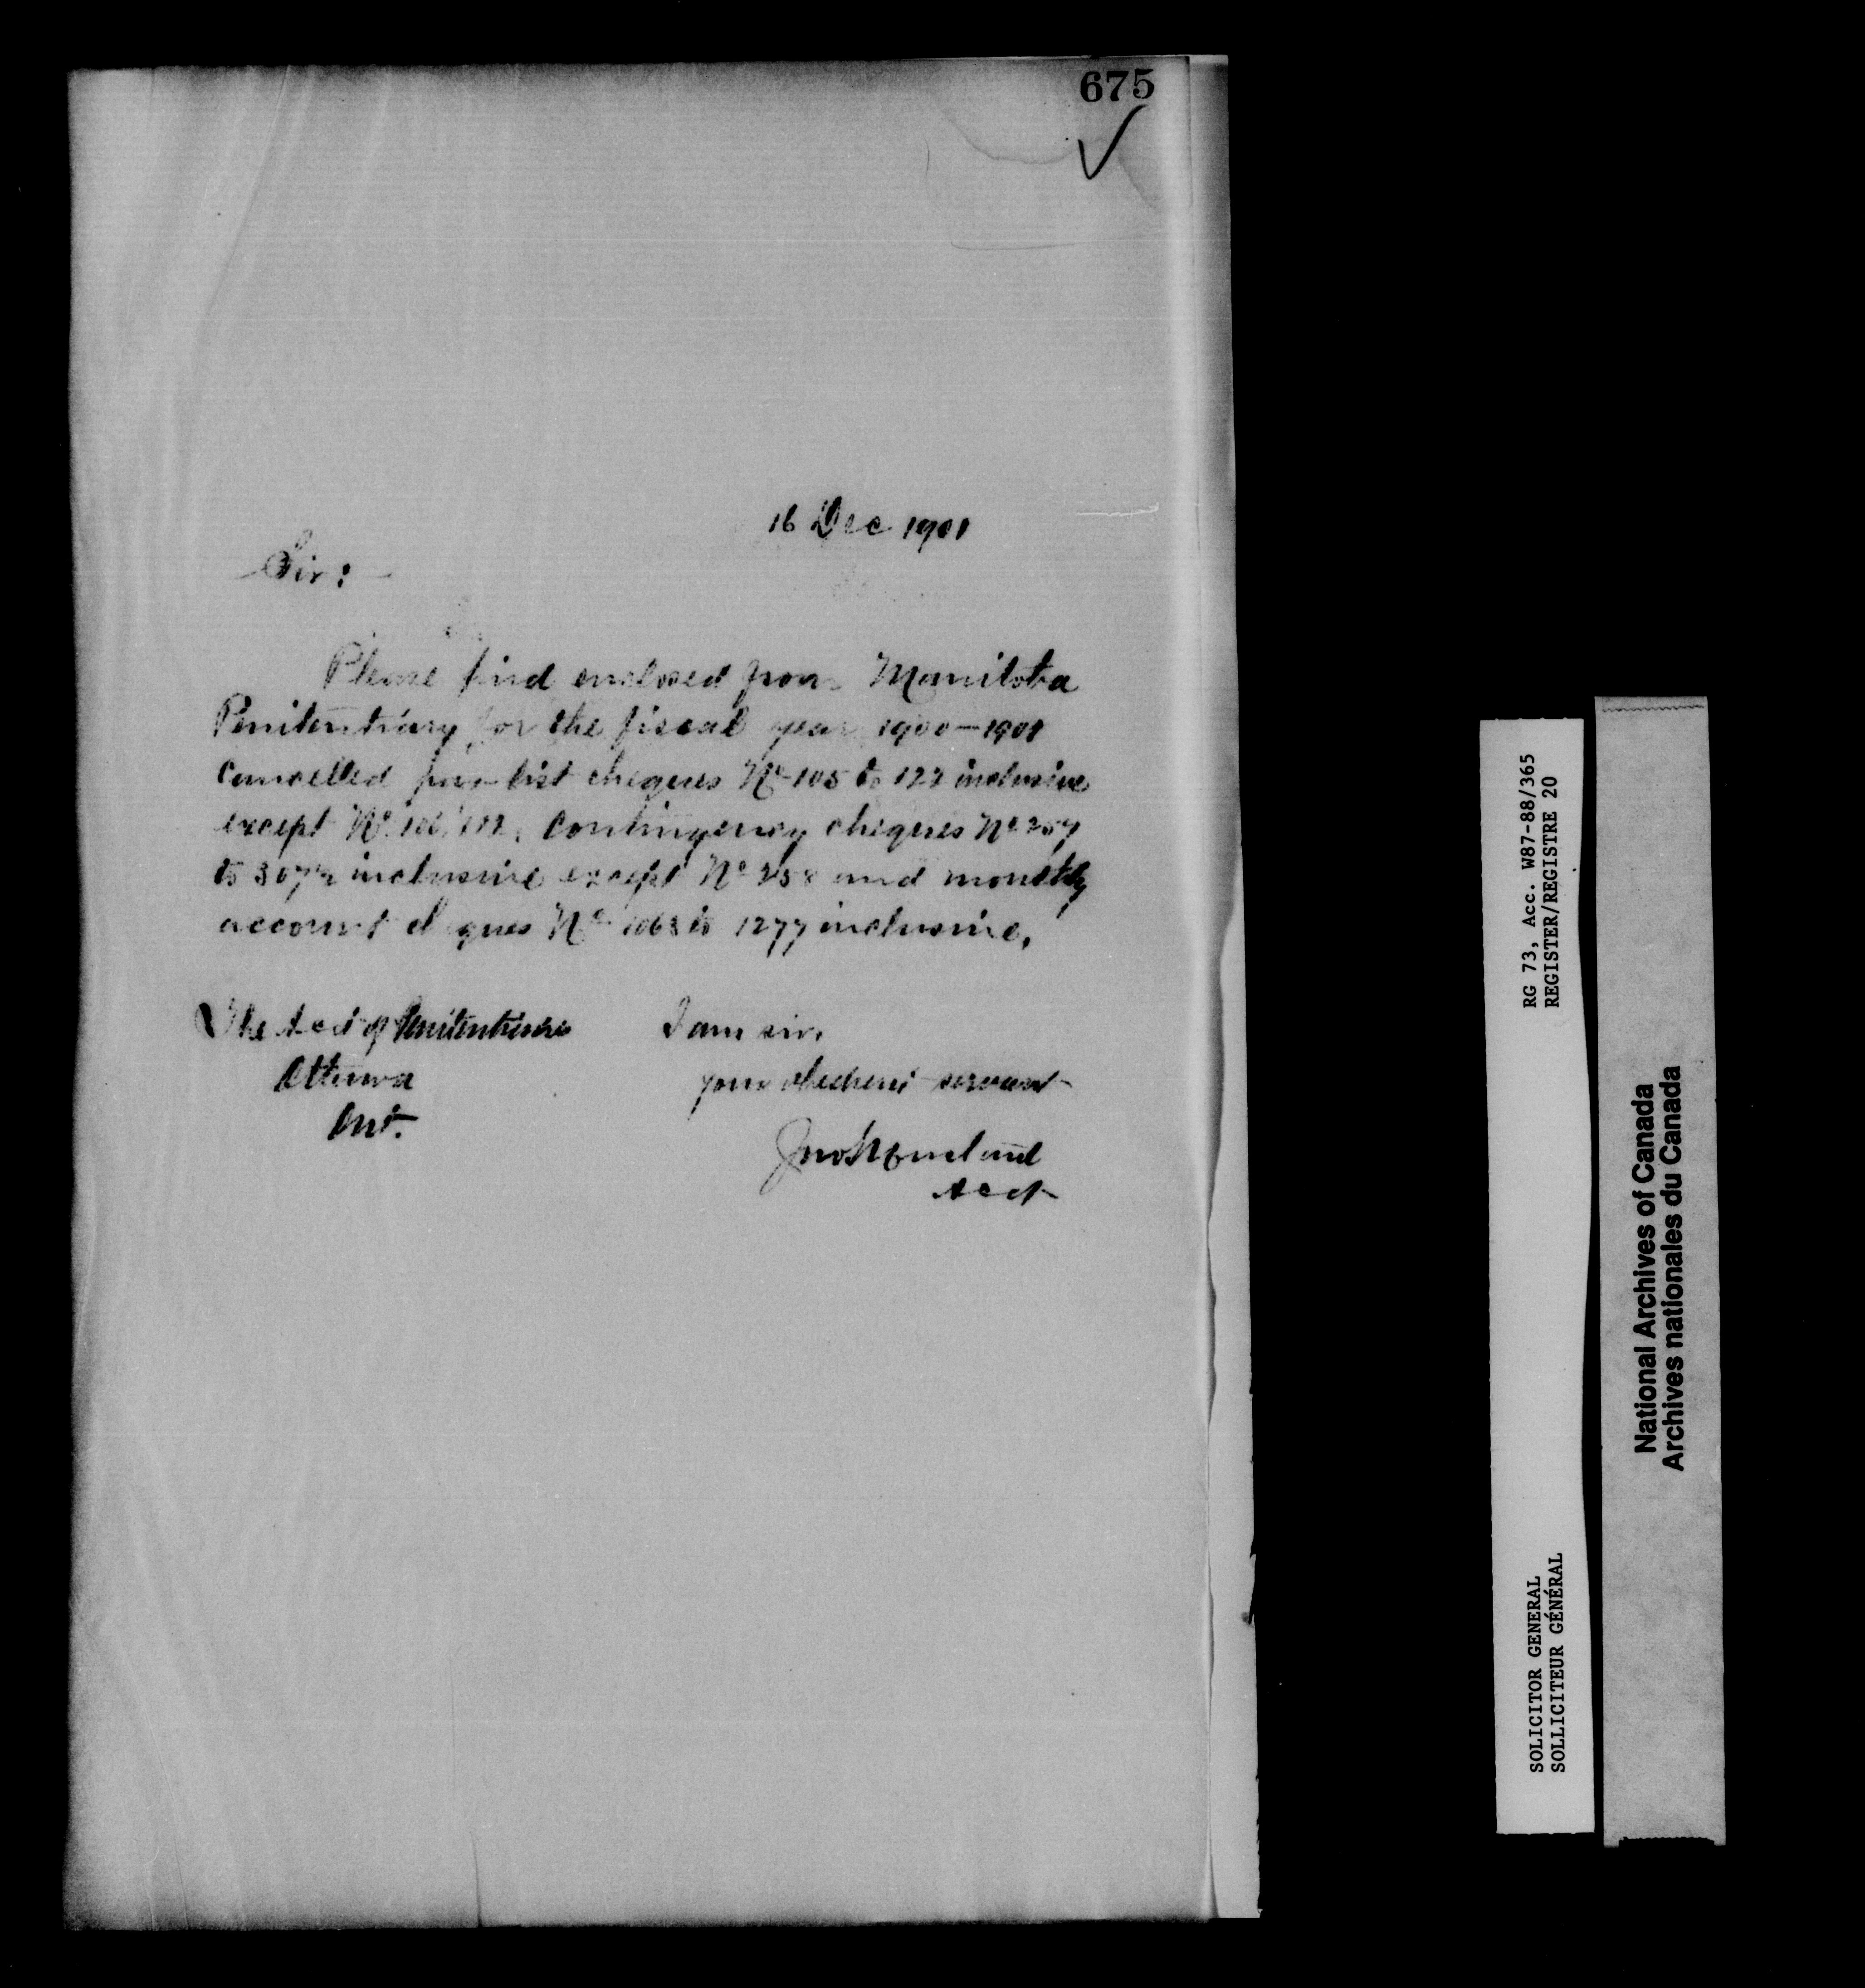 675
16 Dec 1901
Sir:
Please find enclosed from Manitoba
Penitentiary for the fiscal year 1900-1901
Cancelled pay list cheques No 105 to 127 inclusive
except No. 106, 112. Contingency cheques No 257
to 307½ inclusive except No 258 and monthly
account cheques No 1068 to 1277 inclusive.
The Acct of Penitentiaries
Ottawa
Ont.
I am sir,
your obedient servant
Acct
RG 73, Acc. W87-88/365
REGISTER/REGISTRE 20
SOLICITOR GENERAL
SOLLICITEUR GÉNÉRAL
National Archives of Canada
Archives nationales du Canada